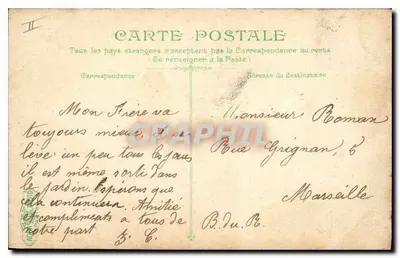 II
CARTE POSTALE
Tous les pays étrangers n'acceptent pas la Correspondance au recto
(Se renseigner à la Poste)
Correspondance
Adresse du destinataire
Mon Frère va
toujours mieux & se
lève un peu tous les jours
il est même sorti dans
le jardin. Espérons que
cela continuera. Amitié
et compliments à tous de
notre part
Z. C.
Monsieur Roman
Rue Grignan, 5
Marseille
B. du R.